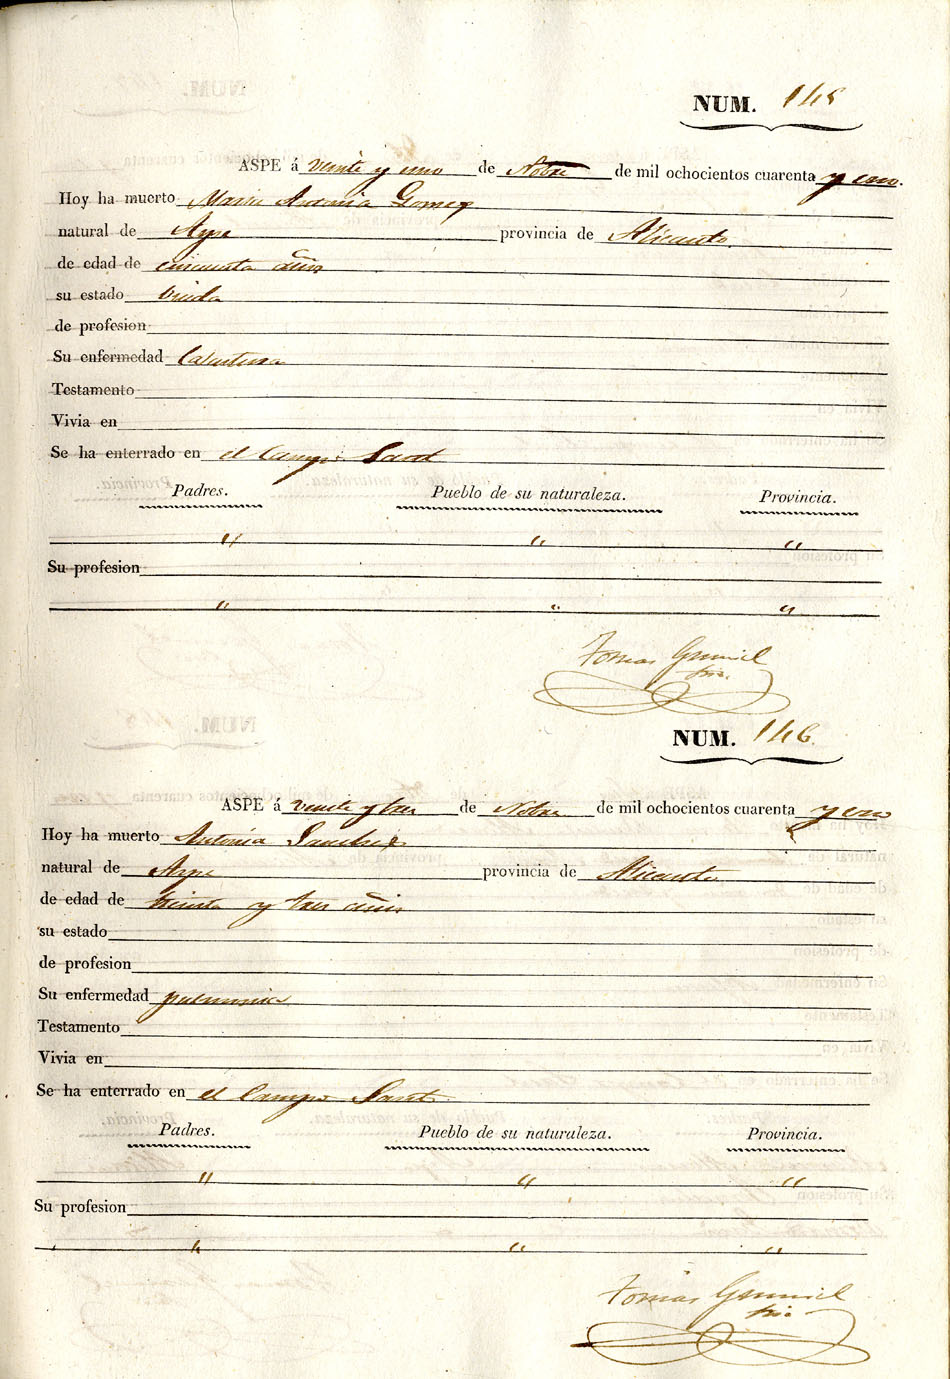 NUM. 145
ASPE á veinte y uno de Nobre de mil ochocientos cuarenta y uno.
Hoy ha muerto Maria Antonia Gomez
natural de Aspe provincia de Alicante
de edad de cincuenta años
su estado Viuda
de profesion
Su enfermedad Calentura
Testamento
Vivia en
Se ha enterrado en el Campo Santo
Padres. Pueblo de su naturaleza. Provincia.
" " "
Su profesion
" " "
Tomas
NUM. 146
ASPE á veinte y tres de Nobre de mil ochocientos cuarenta y uno
Hoy ha muerto Antonia Sanchez
natural de Aspe provincia de Alicante
de edad de treinta y tres años
su estado
de profesion
Su enfermedad pulmonia
Testamento
Vivia en
Se ha enterrado en el Campo Santo
Padres. Pueblo de su naturaleza. Provincia.
" " "
Su profesion
" " "
Tomas